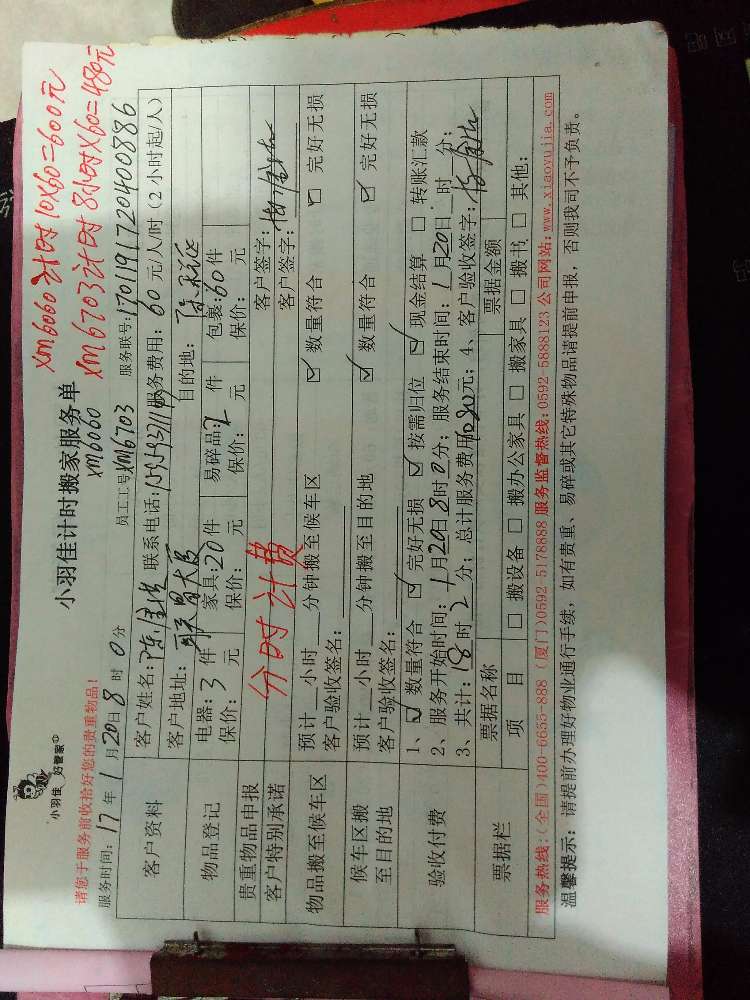 小羽佳 好管家
小羽佳计时搬家服务单
xm6060计时10X60=600元
xm6703计时8小时X60=480元
请您于服务前收拾好您的贵重物品!
xm6060
服务时间: 17年1月20日8时0分 员工工号xm6703 服务联号:1701191720400886
客户资料
客户姓名: 联系电话: 服务费用: 60元/人/时 (2小时起/人)
客户地址: 目的地:
物品登记
电器:3件 家具:20件 易碎品:2件 包裹:60件
保价: 元 保价: 元 保价: 元 保价: 元
贵重物品申报 客户签字:
客户特别承诺 分时计费 客户签字:
物品搬至候车区
预计__小时__分钟搬至候车区 ☑ 数量符合 □ 完好无损
客户验收签名:
候车区搬至目的地
预计__小时__分钟搬至目的地 ☑ 数量符合 ☑ 完好无损
客户验收签名:
验收付费
1、☑ 数量符合 ☑ 完好无损 ☑ 按需归位 ☑ 现金结算 □ 转账汇款
2、服务开始时间: 1月20日8时0分; 服务结束时间: 1月20日 时 分;
3、共计: 18时 分; 总计服务费用1080元; 4、客户验收签字:
票据栏
票据名称 票据金额
项 目 □ 搬设备 □ 搬办公家具 □ 搬家具 □ 搬书 □ 其他:
服务热线:(全国)400-6655-888 (厦门)0592-5178888 服务监督热线:0592-5888123 公司网站:www.xiaoyujia.com
温馨提示: 请提前办理好物业通行手续, 如有贵重、易碎或其它特殊物品请提前申报, 否则我司不予负责。